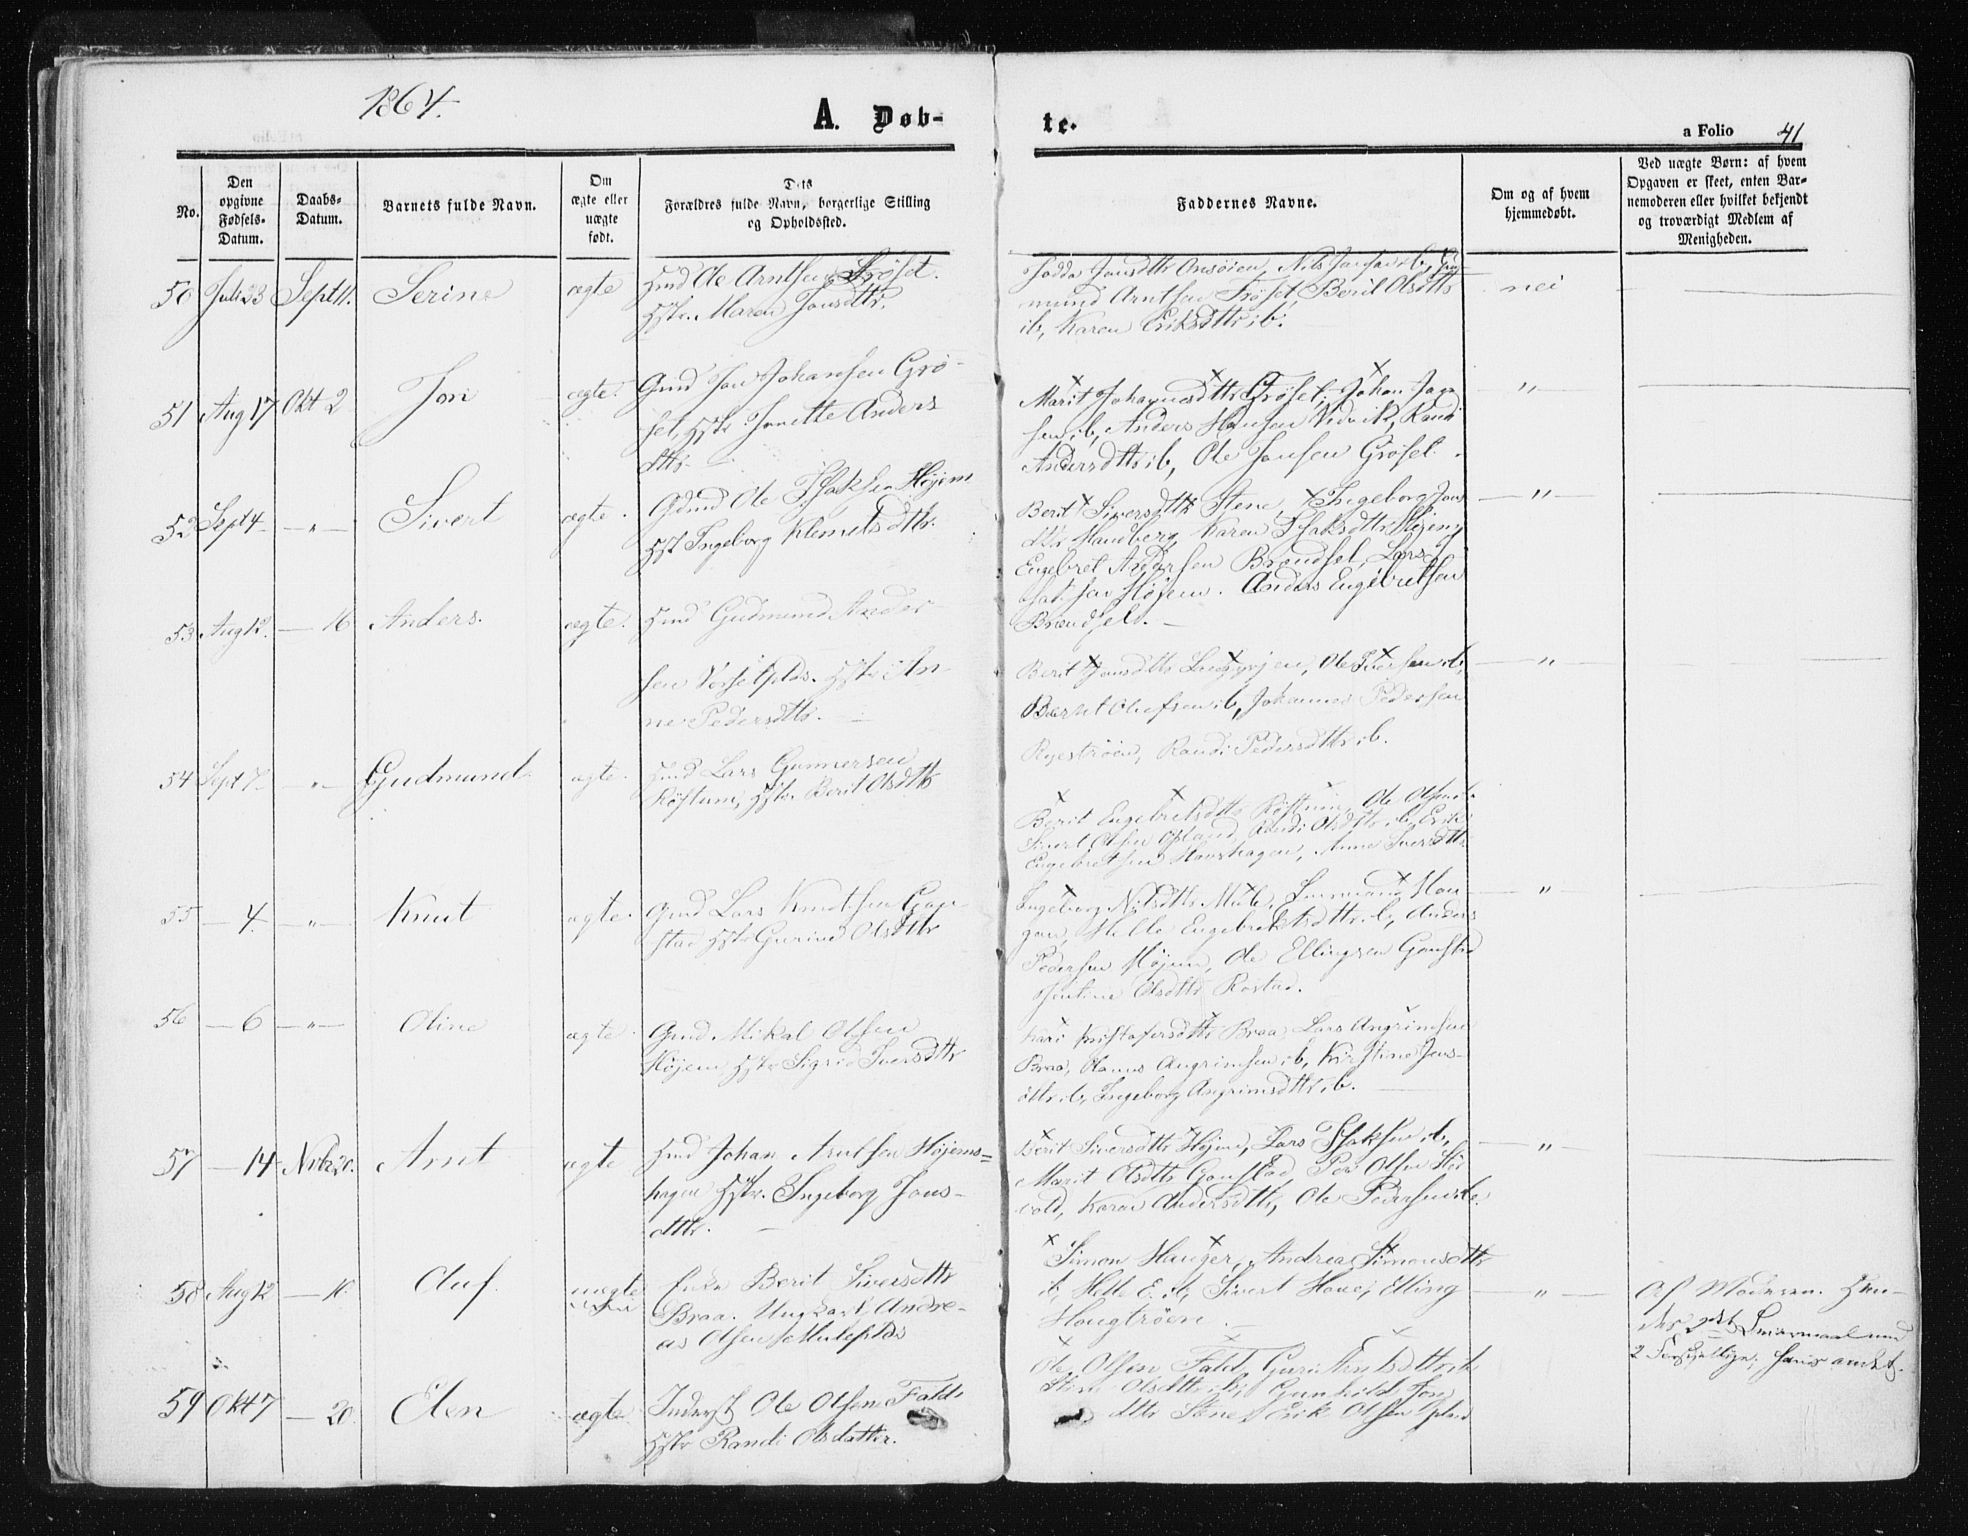 1864.
A. Døb-
te.
a Folio 41
No.
Den opgivne Fødsels-Datum.
Daabs-Datum.
Barnets fulde Navn.
Om ægte eller uægte født.
Dets Forældres fulde Navn, borgerlige Stilling og Opholdssted.
Faddernes Navne.
Om og af hvem hjemmedøbt.
Ved uægte Børn: af hvem Opgaven er skeet, enten Barnemoderen eller hvilket bekjendt og troværdigt Medlem af Menigheden.
50 Juli 23 Sept 11. Serine ægte Hmd Ole Arntsen Trøset.
Hstr. Maren Jonsdttr.
Nils
mund Arntsen Trøset, Berit Olsdttr
ib, Karen Eriksdttr ib.
nei
51 Aug 17 Okt 2 Jon ægte. Gmd Jon Johansen Grø-
set, Hstr Jonette Anders
dttr
Marit Johannesdttr Grøset, Johan
sen ib, Anders Hansen Vidvik, Randi
Andersdttr ib, Ole Jonsen Grøset.
—"—
52 Sept 4 —"— Sivert ægte. Gdmd Ole Isaksen Høiem
Hst Ingeborg Klemetsdttr.
Berit Siversdttr Stene, Ingeborg Jons
dttr Sandberg, Karen Isaksdttr Høiem,
Engebret Andersen Brændsel, Lars I-
saksen Høiem. Anders Engebretsen
Brændsel.
—"—
53 Aug 12. — 16 Anders. ægte. Hmd Gudmund Ander-
sen Hstr An-
ne Pedersdttr.
Berit Jonsdttr Ole Iversen ib,
Bernt Olufsen ib, Johannes Pedersen
Ryeströen, Randi Pedersdttr ib.
—"—
54 Sept 7 —"— Gudmund ægte. Hmd Lars Gunnersen
Röftum, Hstr. Berit Olsdttr
Berit Engebretsdttr Röftum, Ole Olsen ib.
Sivert Olsen Opland, Randi Olsdttr ib, Erik
Engebretsen Anne Iversdttr
55 — 4. —"— Knut ægte. Gmd Lars Knudtsen Gon-
stad Hstr Gurine Olsdttr
Ingeborg Nilsdttr Mule,
gen, Helle Engebrektsdttr ib, Anders
Pedersen Høiem, Ole Ellingsen Gonstad
Olsdttr Rostad.
—"—
56 — 6 —"— Oline ægte Gmd Mikal Olsen
Höjem Hstr Sigrid Iversdttr
Kari Kristofersdttr Braa, Lars Angrimsen
Braa, Hanns Angrimsen ib, Kirstine Jens-
dttr ib, Ingeborg Angrimsdttr ib.
57 — 14 Nvbr 20. Arnt ægte Hmd Johan Arntsen Höjems=
hagen Hstr. Ingeborg Jons-
dttr.
Berit Siversdttr Höjem, Lars Isaksen ib,
Marit Olsdttr Gonstad, Per Olsen
vold, Karen Andersdttr, Ole Persen ib.
—"—
58 Aug 12 — 10. Oluf. uægte Enke Berit Siversdttr
Braa. Ungkarl Andre-
as Olsen Muleplds
Simon Hauger, Andrea Simonsdttr
ib, Helle E. ib, Sivert Hove, Elling
Hougtröen.
—"—
Af Moderen. Hen-
des 2det Leiermaal med
2 Forskjellige; hans andet.
59 Okt 7 — 20. Elen ægte Inderst Ole Olsen Fald
Hstr Randi Olsdatter.
Ole Olsen Fald, Guri Arntsdttr ib
Stine Olsdttr ib, Gunhild Jon
dttr Stene, Erik Olsen